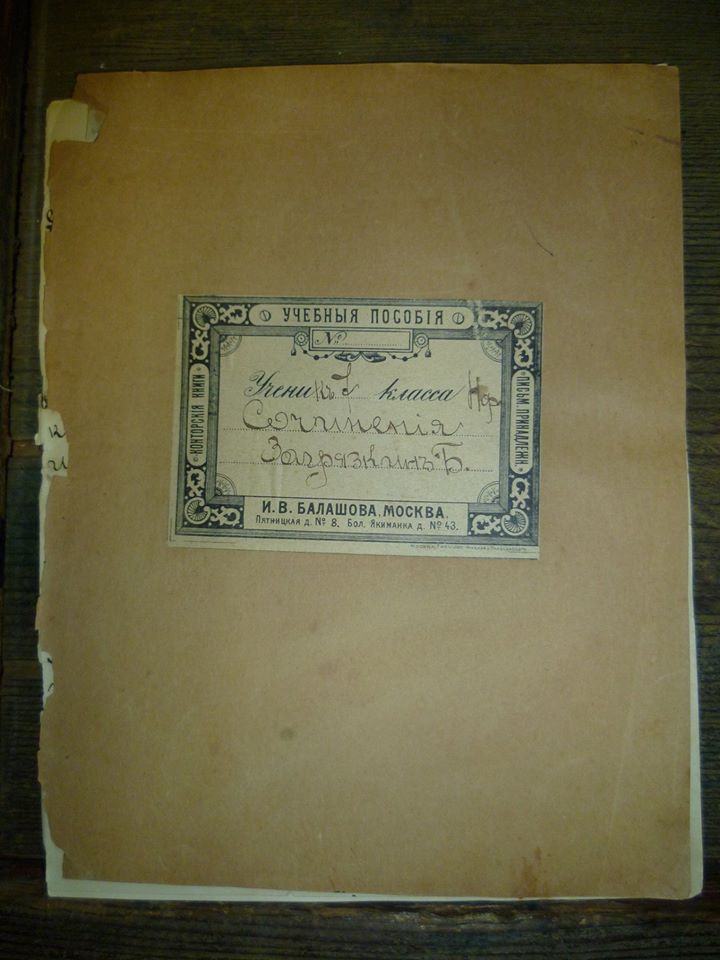 УЧЕБНЫЯ ПОСОБІЯ
№
КОНТОРСКІЯ КНИГИ
ПИСЬМ. ПРИНАДЛЕЖН.
Ученикъ класса
Сочиненія
Загрязкинъ Б.
И. В. БАЛАШОВА, МОСКВА.
Пятницкая д. № 8. Бол. Якиманка д. № 43.